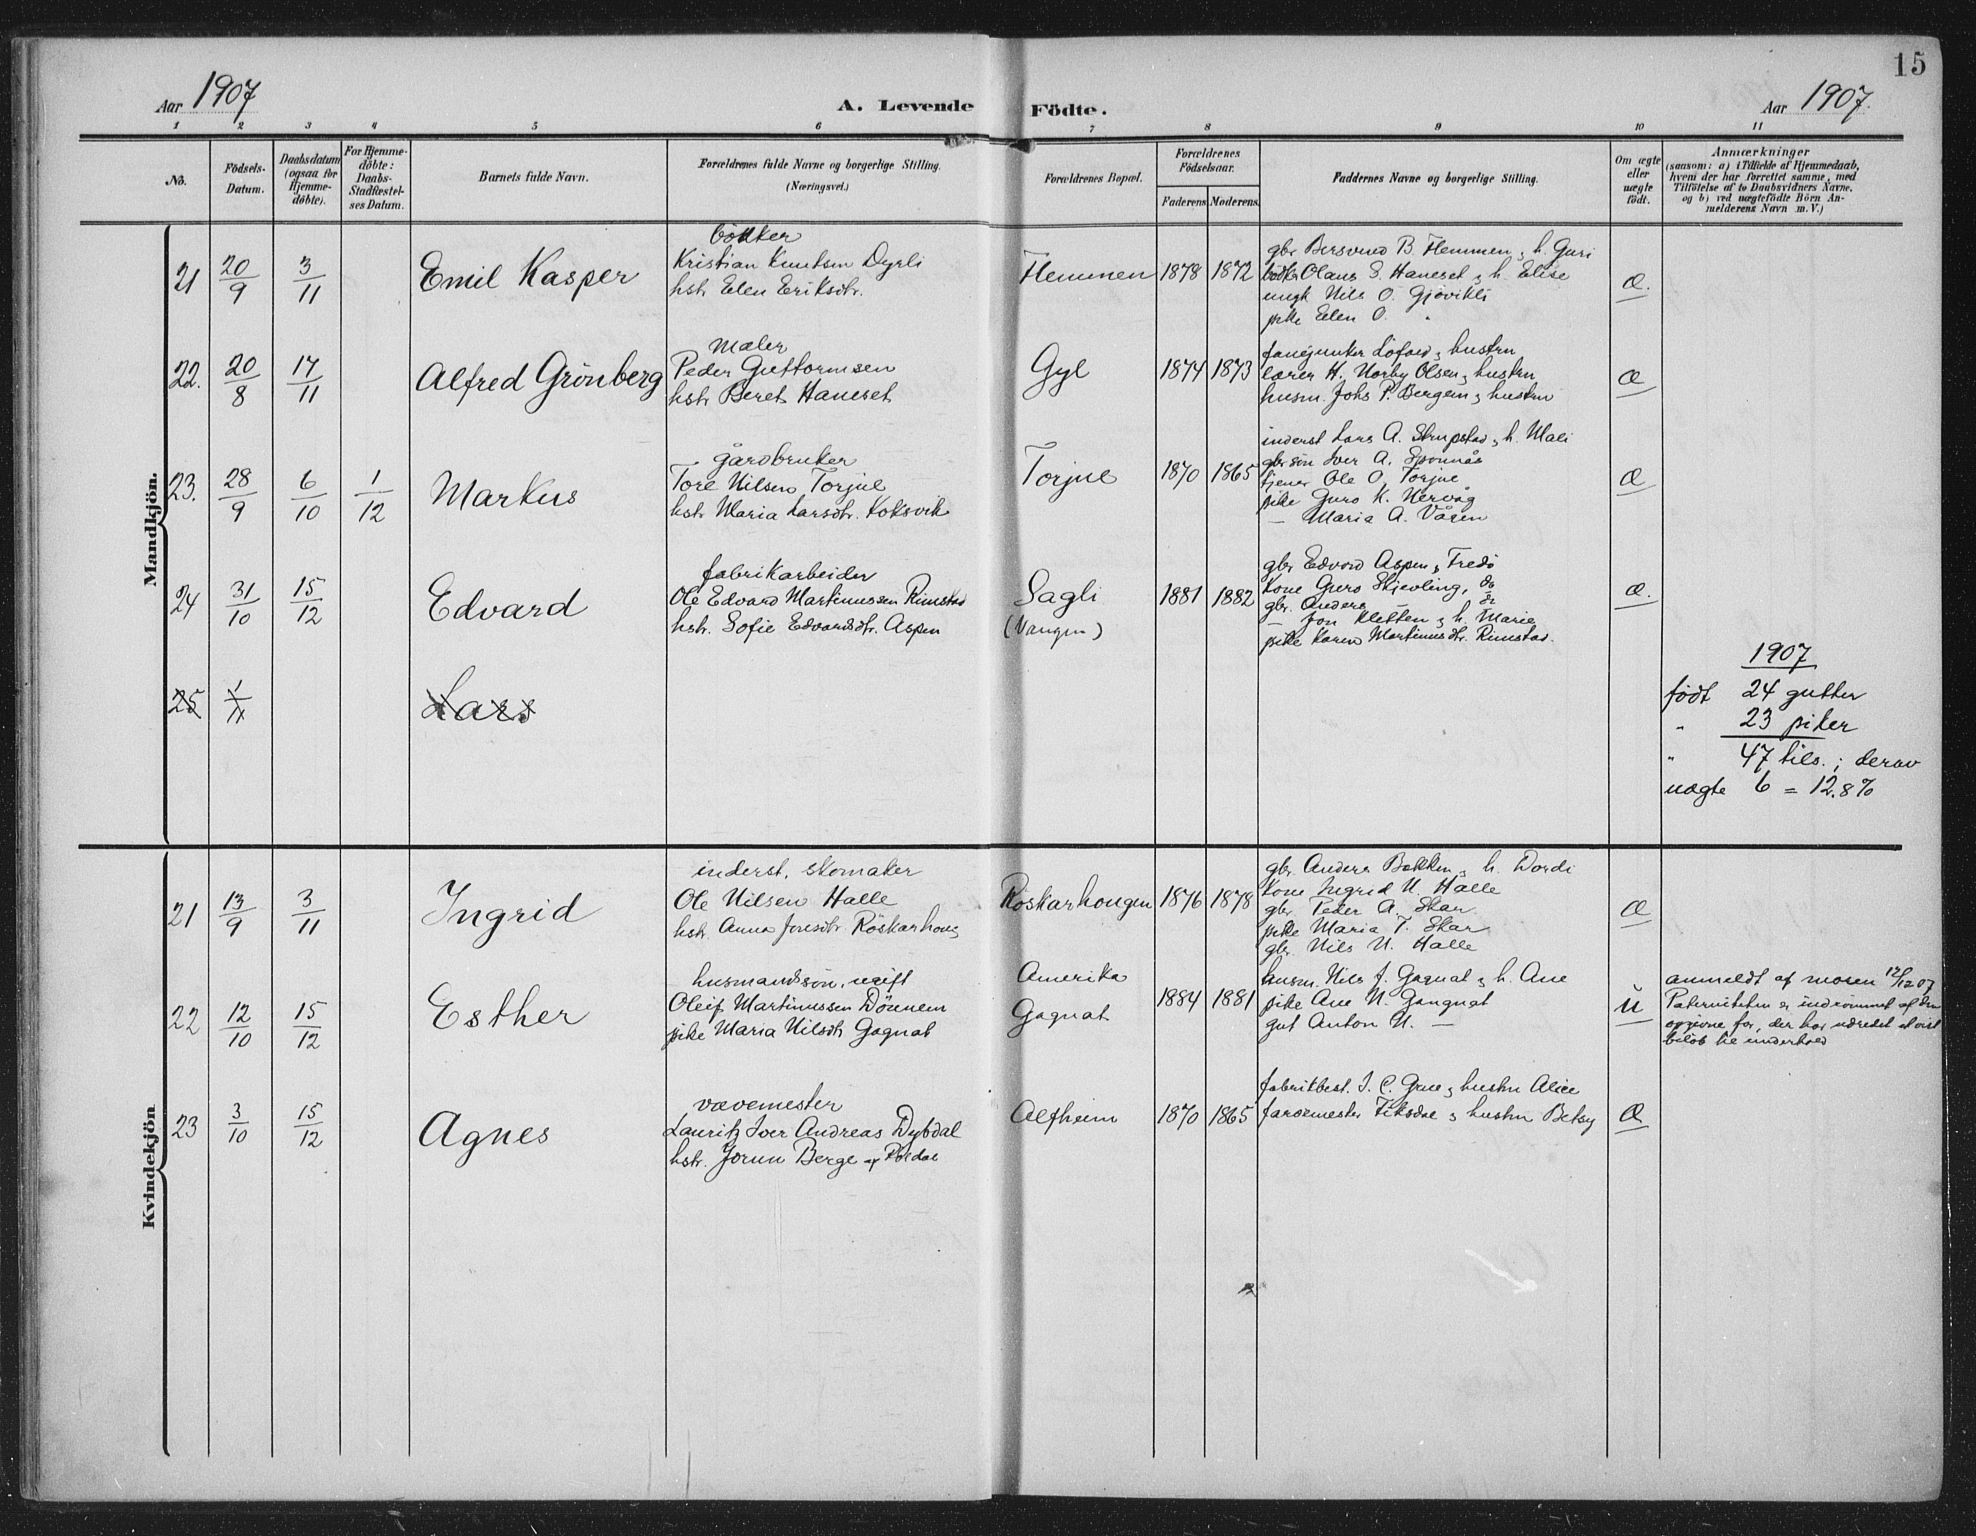 15
Aar 1907
A. Levende Födte.
Aar 1907.
1 2 3 4 5 6 7 8 9 10 11
No.
Födsels-Datum.
Daabsdatum (ogsaa for Hjemme-döbte).
For Hjemme-döbte: Daabs-Stadfæstel-ses Datum.
Barnets fulde Navn.
Forældrenes fulde Navne og borgerlige Stilling. (Næringsvei.)
Forældrenes Bopæl.
Forældrenes Födselsaar.
Faderens. Moderens.
Faddernes Navne og borgerlige Stilling.
Om ægte eller uægte födt.
Anmærkninger
(saasom: a) i Tilfælde af Hjemmedaab,
hvem der har forrettet samme, med
Tilföielse af to Daabsvidners Navne,
og b) ved uægtefödte Börn An-
melderens Navn m. V.)
Mandkjön.
21 20/9 3/11 Emil Kasper
bökker
Kristian Knutsen Dyrli
hstr Elen Eriksdtr.
Hemmen 1878 1872
gbr Bersvend B. Hemmen & h. Guri
Olaus S. Haneset & h. Elise
ungk Nils O. Gjövikli
pike Elen O. "
Æ.
22. 20/8 17/11 Alfred Grönberg
maler
Peder Guttormsen
hstr Beret Haneset
Gyl 1874 1873
fanejunker Löfald & hustru
lærer H. Norby Olsen & hustru
husm. Johs P. Bergem & hustru
Æ
23. 28/9 6/10 1/12 Markus
gårdbruker
Tore Nilsen Torjul
hstr Maria Larsdtr. Koksvik
Torjul 1870 1865
inderst Lars A. Strupstad & h. Mali
gbrsön Iver A. Sponnås
tjener Ole O. Torjul
pike Guro K. Nervåg
— Maria A. Vågen
Æ
24 31/10 15/12 Edvard
fabrikarbeider
Ole Edvard Martinussen Rimstad
hstr. Sofie Edvardsdtr. Aspen
Sagli
(Vangen)
1881 1882
gbr Edvard Aspen, Fredö
kone Guro Skjevling, do
gbr. Anders do
— Jon Kletten & h. Marie
pike Karen Martinusdtr. Rimstad.
Æ.
25 1/11 Lars
1907
födt 24 gutter
" 23 piker
" 47 tils.; derav
uægte 6 = 12.8%
Kvindekjön
21 13/9 3/11 Ingrid
inderst, skomaker
Ole Nilsen Halle
hstr. Anna Jonsdtr. Röskarhoug
Röskarhougen 1876 1878
gbr Anders Bakken & h. Dordi
kone Ingrid N. Halle
gbr Peder A. Skar
pike Maria T. Skar
gbr Nils N. Halle
Æ
22 12/10 15/12 Esther
husmandssön, ugift
Oleif Martinussen Dönnem
pike Maria Nilsdtr Gagnat
Amerika
Gagnat
1884 1881
husm. Nils J. Gagnat & h. Ane
pike Ane N. Gangnat
gut Anton N. —
U
anmeldt af moren 12/12 07
Paterniteten er indrömmet af den
opgivne far, der har udredet et vist
belöb til underhold
23 3/10 15/12 Agnes
vævemester
Lauritz Iver Andreas Dybdal
hstr. Jorun Berge af Röldal
Alfheim 1870 1865
fabrikbest. I. C. Grue & hustru Alice
farvemester Fiksdal & hustru Betsy
Æ